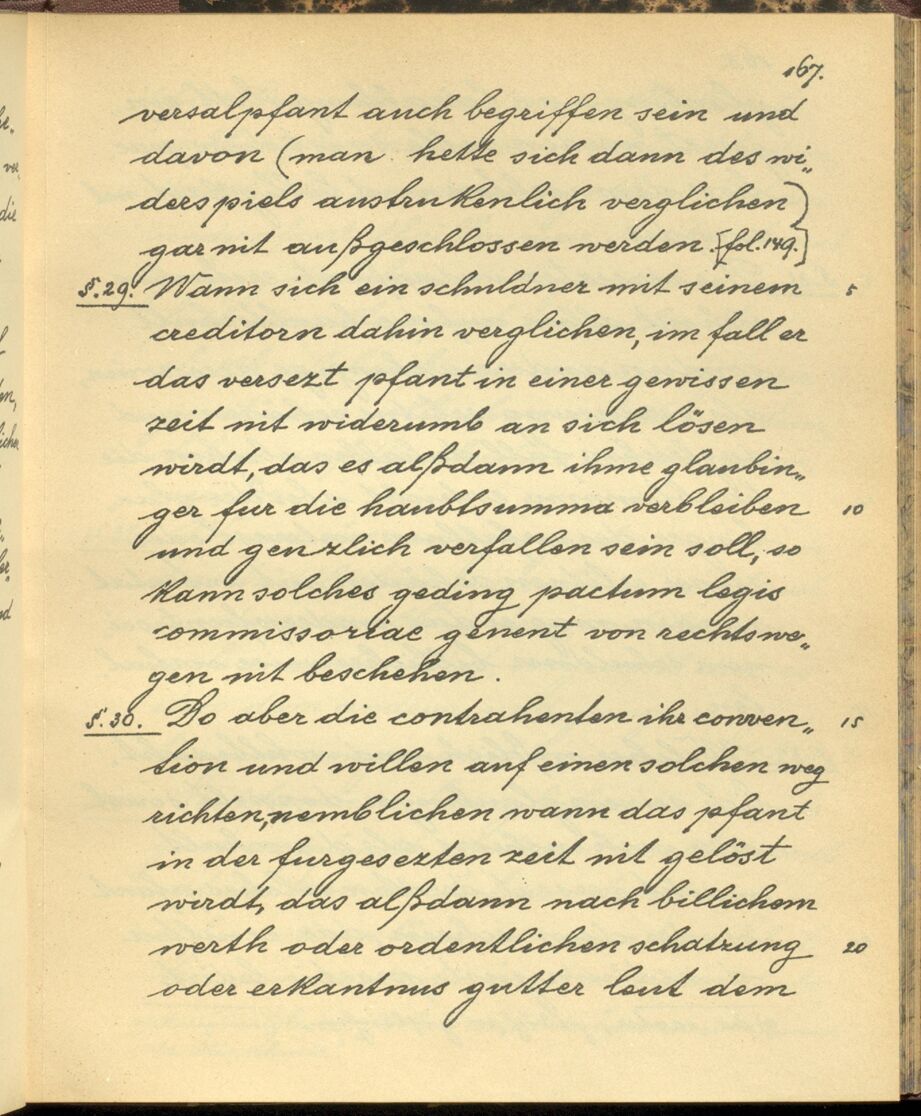 167.
versalpfant auch begriffen sein und
davon (man hette sich dann des wi„
derspiels austrukenlich verglichen)
gar nit außgeschlossen werden. [fol. 149.]
§. 29. Wann sich ein schuldner mit seinem 5
creditorn dahin verglichen, im fall er
das versezt pfant in einer gewissen
zeit nit widerumb an sich lösen
wirdt, das es alßdann ihme glaubin„
ger fur die haubtsumma verbleiben 10
und genzlich verfallen sein soll, so
kann solches geding pactum legis
commissoriae genent von rechtswe„
gen nit beschehen.
§. 30. Do aber die contrahenten ihr conven„ 15
tion und willen auf einen solchen weg
richten, nemblichen wann das pfant
in der furgesezten zeit nit gelöst
wirdt, das alßdann nach billichem
werth oder ordentlichen schatzung 20
oder erkantnus gutter leut dem